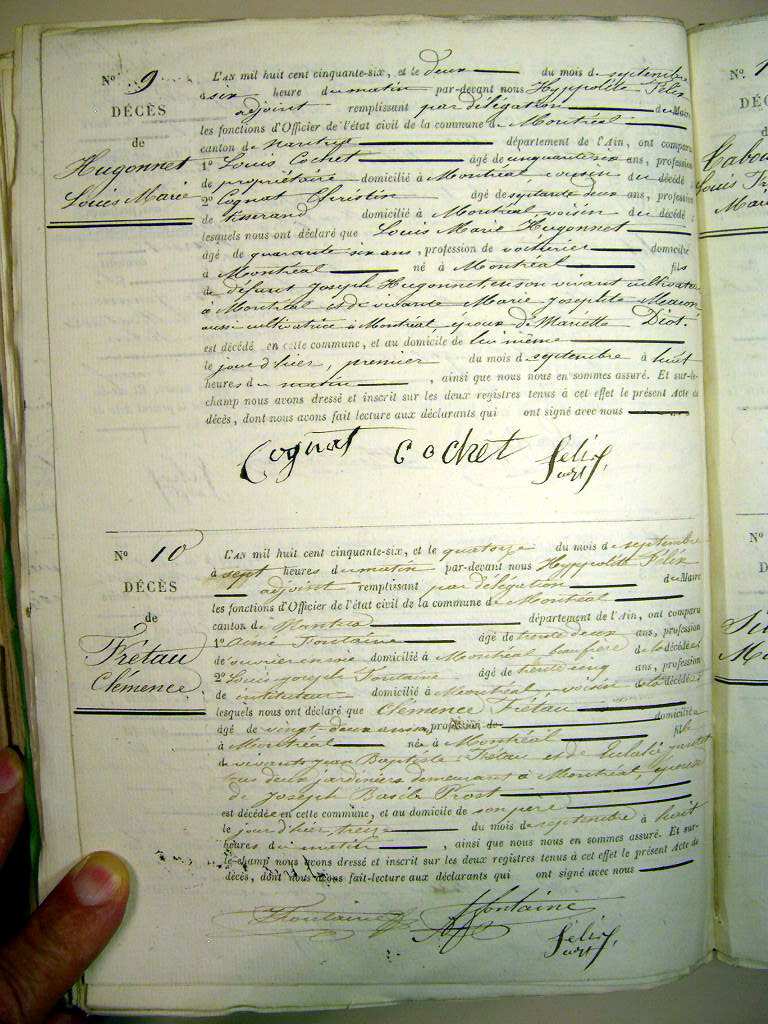 N° 9
DÉCÈS
de
Hugonnet
Louis Marie
L'AN mil huit cent cinquante-six, et le deux du mois de septembre
à six heure du matin par-devant nous Hyppolite Félix
adjoint remplissant par délégation du Maire
les fonctions d'Officier de l'état civil de la commune de Montréal
canton de Nantua département de l'Ain, ont comparu
1° Louis Cochet âgé de cinquante six ans, profession
de propriétaire domicilié à Montréal voisin du décédé
2° Cognat Christin âgé de septante deux ans, profession
de tisserand domicilié à Montréal voisin du décédé
lesquels nous ont déclaré que Louis Marie Hugonnet
âgé de quarante six ans, profession de voiturier domicilié
à Montréal né à Montréal fils
de défunt Joseph Hugonnet, en son vivant cultivateur
à Montréal et de vivante Marie Josephte
aussi cultivatrice à Montréal, époux de Mariette Diot.
est décédé en cette commune, et au domicile de lui même
le jour d'hier, premier du mois de septembre à huit
heures du matin, ainsi que nous nous en sommes assuré. Et sur-le-
champ nous avons dressé et inscrit sur les deux registres tenus à cet effet le présent Acte de
décès, dont nous avons fait lecture aux déclarants qui ont signé avec nous
Cognat Cochet Félix
adjt
N° 10
DÉCÈS
de
Frétau
Clémence
L'AN mil huit cent cinquante-six, et le quatorze du mois de septembre
à sept heures du matin par-devant nous Hyppolite Félix
adjoint remplissant par délégation du Maire
les fonctions d'Officier de l'état civil de la commune de Montréal
canton de Nantua département de l'Ain, ont comparu
1° Aimé Fontaine âgé de trente deux ans, profession
de ouvrier en soie domicilié à Montréal beau frère de la décédée
2° Louis Joseph Fontaine âgé de trente cinq ans, profession
de instituteur domicilié à Montréal, voisin de la décédée
lesquels nous ont déclaré que Clémence Frétau
âgé de vingt deux ans, profession de domiciliée
à Montréal née à Montréal fille
de vivants Jean Baptiste Frétau et de Eulalie
tous deux jardiniers demeurant à Montréal, épouse
de Joseph Basile Prost
est décédée en cette commune, et au domicile de son père
le jour d'hier, treize du mois de septembre à huit
heures du matin, ainsi que nous nous en sommes assuré. Et sur-
le-champ nous avons dressé et inscrit sur les deux registres tenus à cet effet le présent Acte de
décès, dont nous avons fait lecture aux déclarants qui ont signé avec nous
Fontaine Fontaine
Félix
adjt